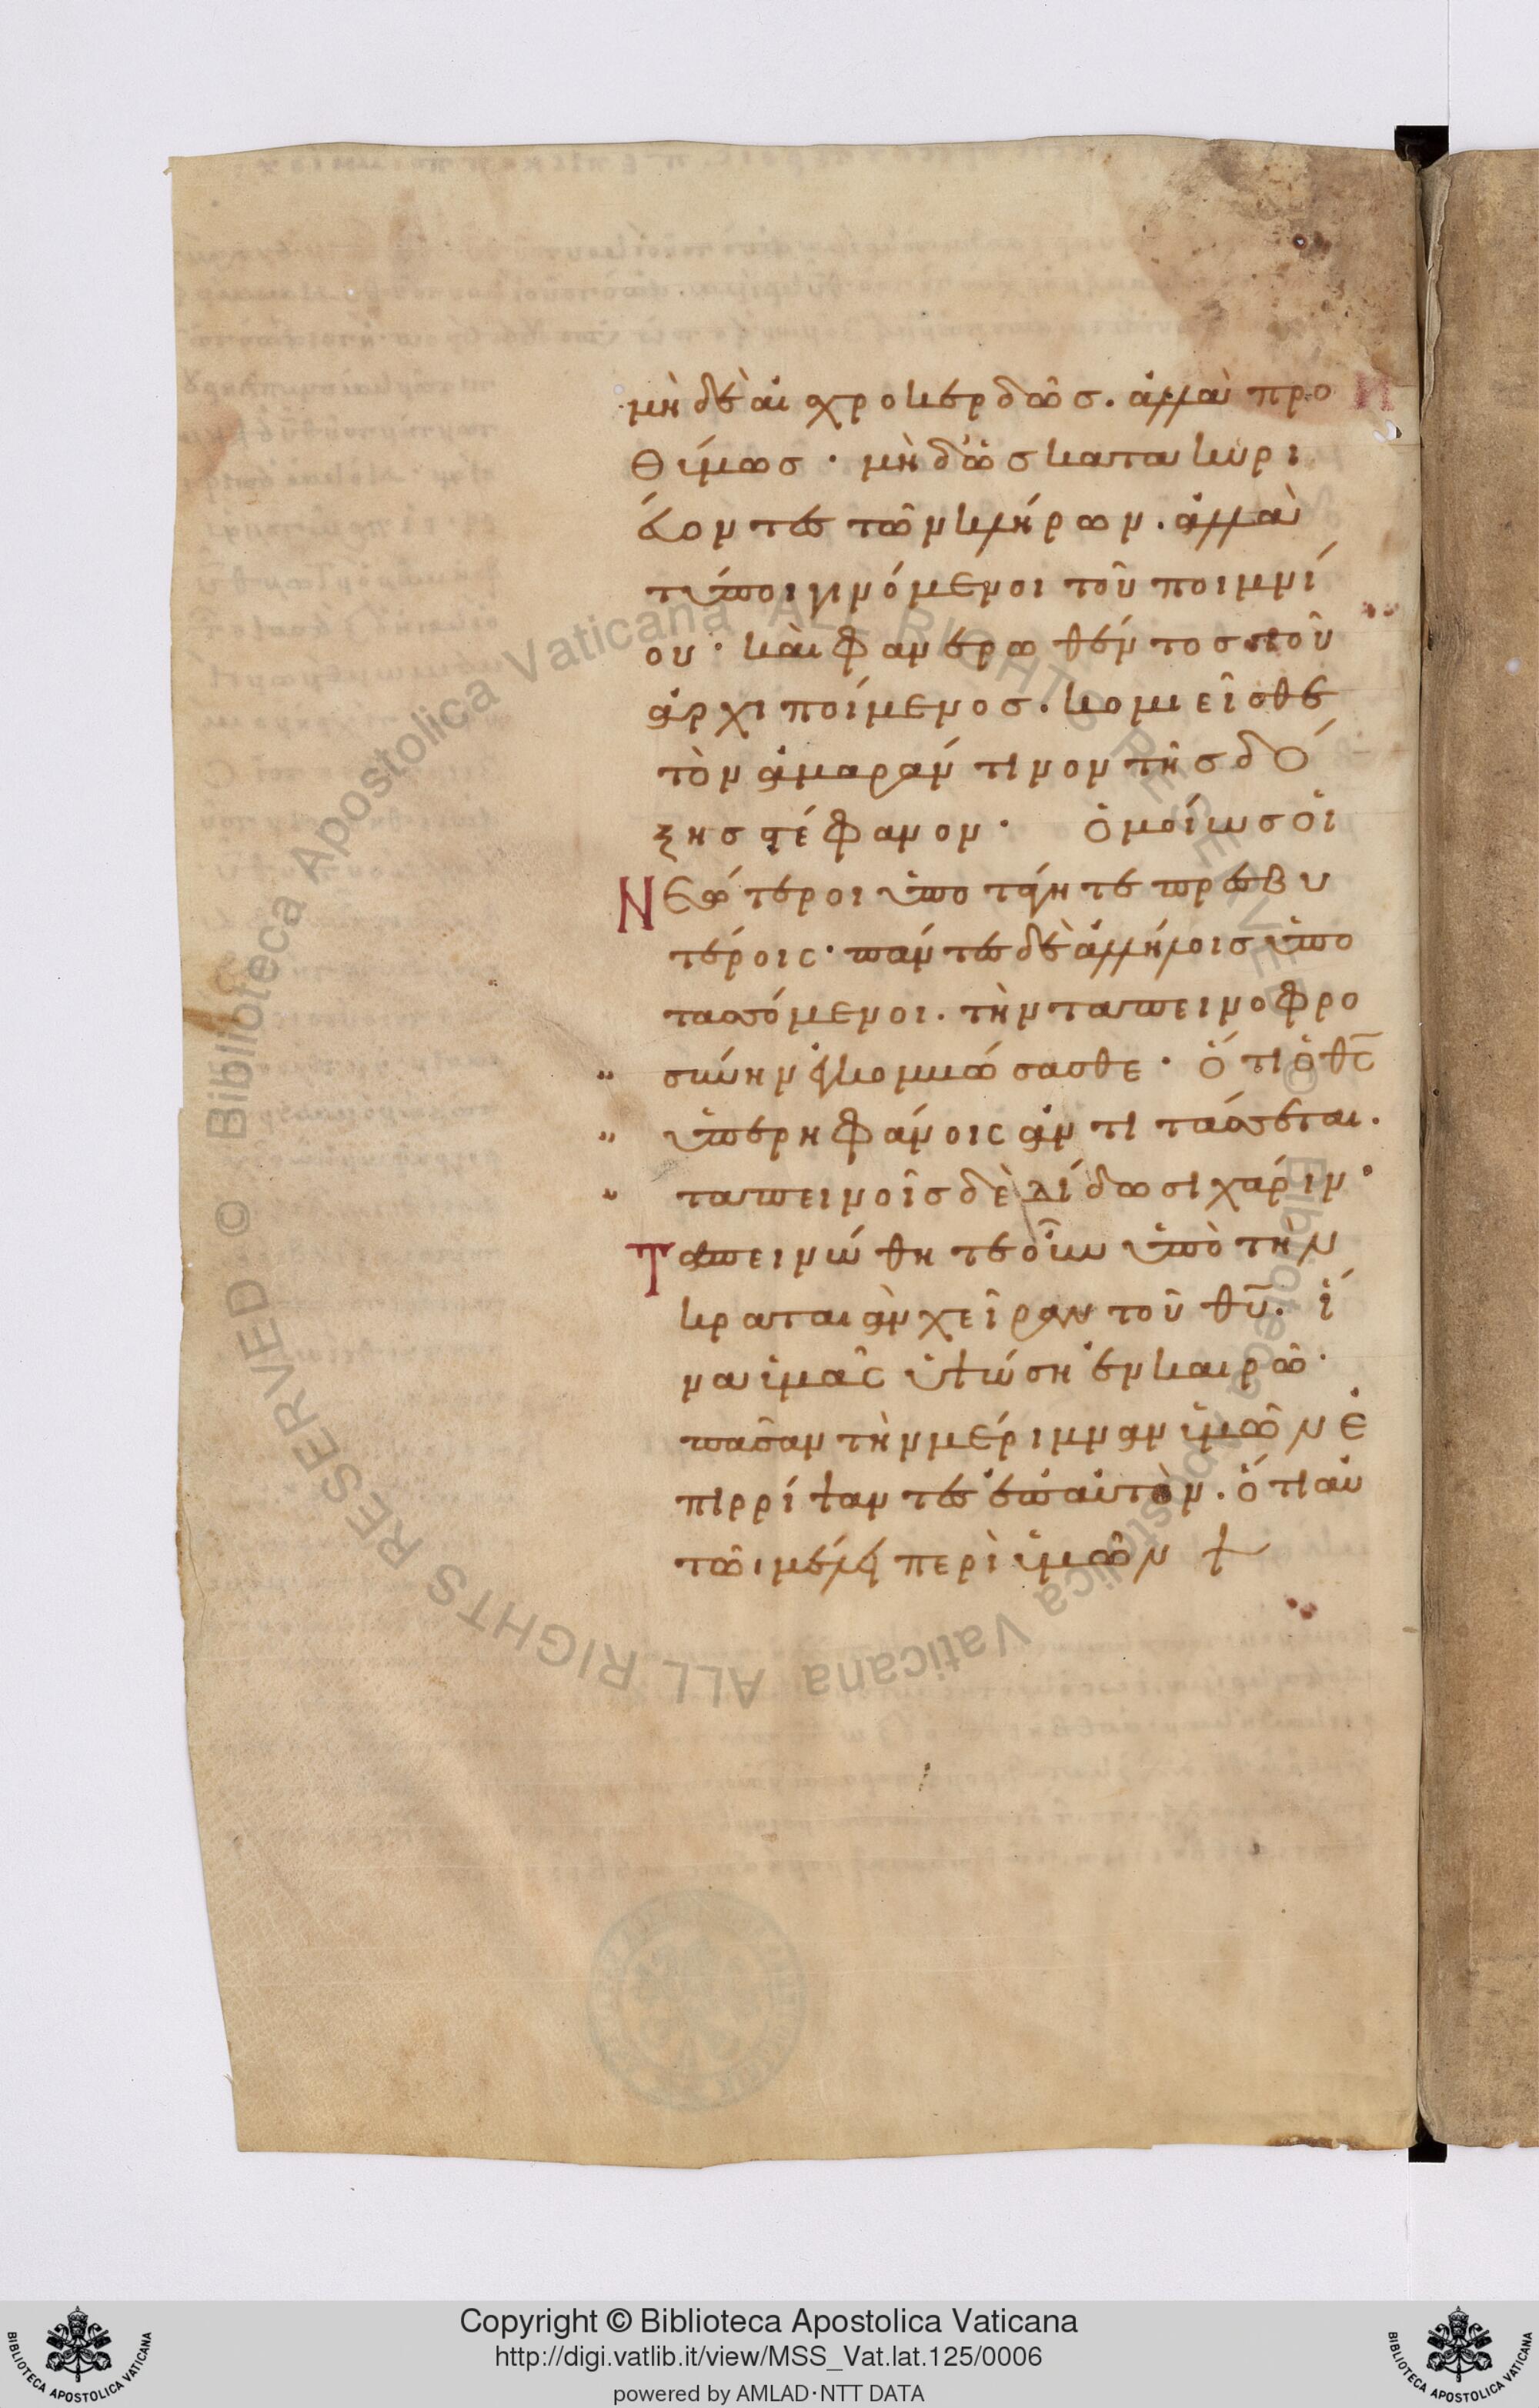 μηδὲ αἰσχροκερδῶσ. ἀλλὰ προ
θύμωσ · μὴδ᾽ ὡσ κατακυρι
εύοντεσ τῶν κλήρων. ἀλλὰ
τύποι γινόμενοι τοῦ ποιμνί
ου · καὶ φανερωθέντοσ τοῦ
ἀρχιποίμενοσ. κομιεῖσθε
τὸν ἀμαράντινον τῆσ δό
ξησ στέφανον · ὁμοίωσ οἱ
Νεώτεροι ὑποτάγητε πρεσβυ
τέροις · πάντεσ δὲ ἀλλήλοισ ὑπο
τασσόμενοι. τὴν ταπεινοφρο
σύνην ἐγκομβώσασθε · ὅτι ὁ θς
ὑπερηφάνοις ἀντιτάσσεται.
ταπεινοῖσ δὲ δίδωσι χάριν ·
Ταπεινώθητε οὖν ὑπὸ τὴν
κραταιὰν χεῖραν τοῦ θυ. ἵ
να ὑμᾶς ὑψώση ἐν καιρῶ ·
πᾶσαν τὴν μέριμναν ὑμῶν ἐ
πιρρίψαντεσ ἐπ᾽ αὐτὸν. ὅτι αὐ
τῶι μέλει περὶ ὑμῶν
Copyright © Biblioteca Apostolica Vaticana
http://digi.vatlib.it/view/MSS_Vat.lat.125/0006
powered by AMLAD·NTT DATA
BIBLIOTECA APOSTOLICA VATICANA
BIBLIOTECA APOSTOLICA VATICANA
© Biblioteca Apostolica Vaticana ALL RIGHTS RESERVED
© Biblioteca Apostolica Vaticana ALL RIGHTS RESERVED